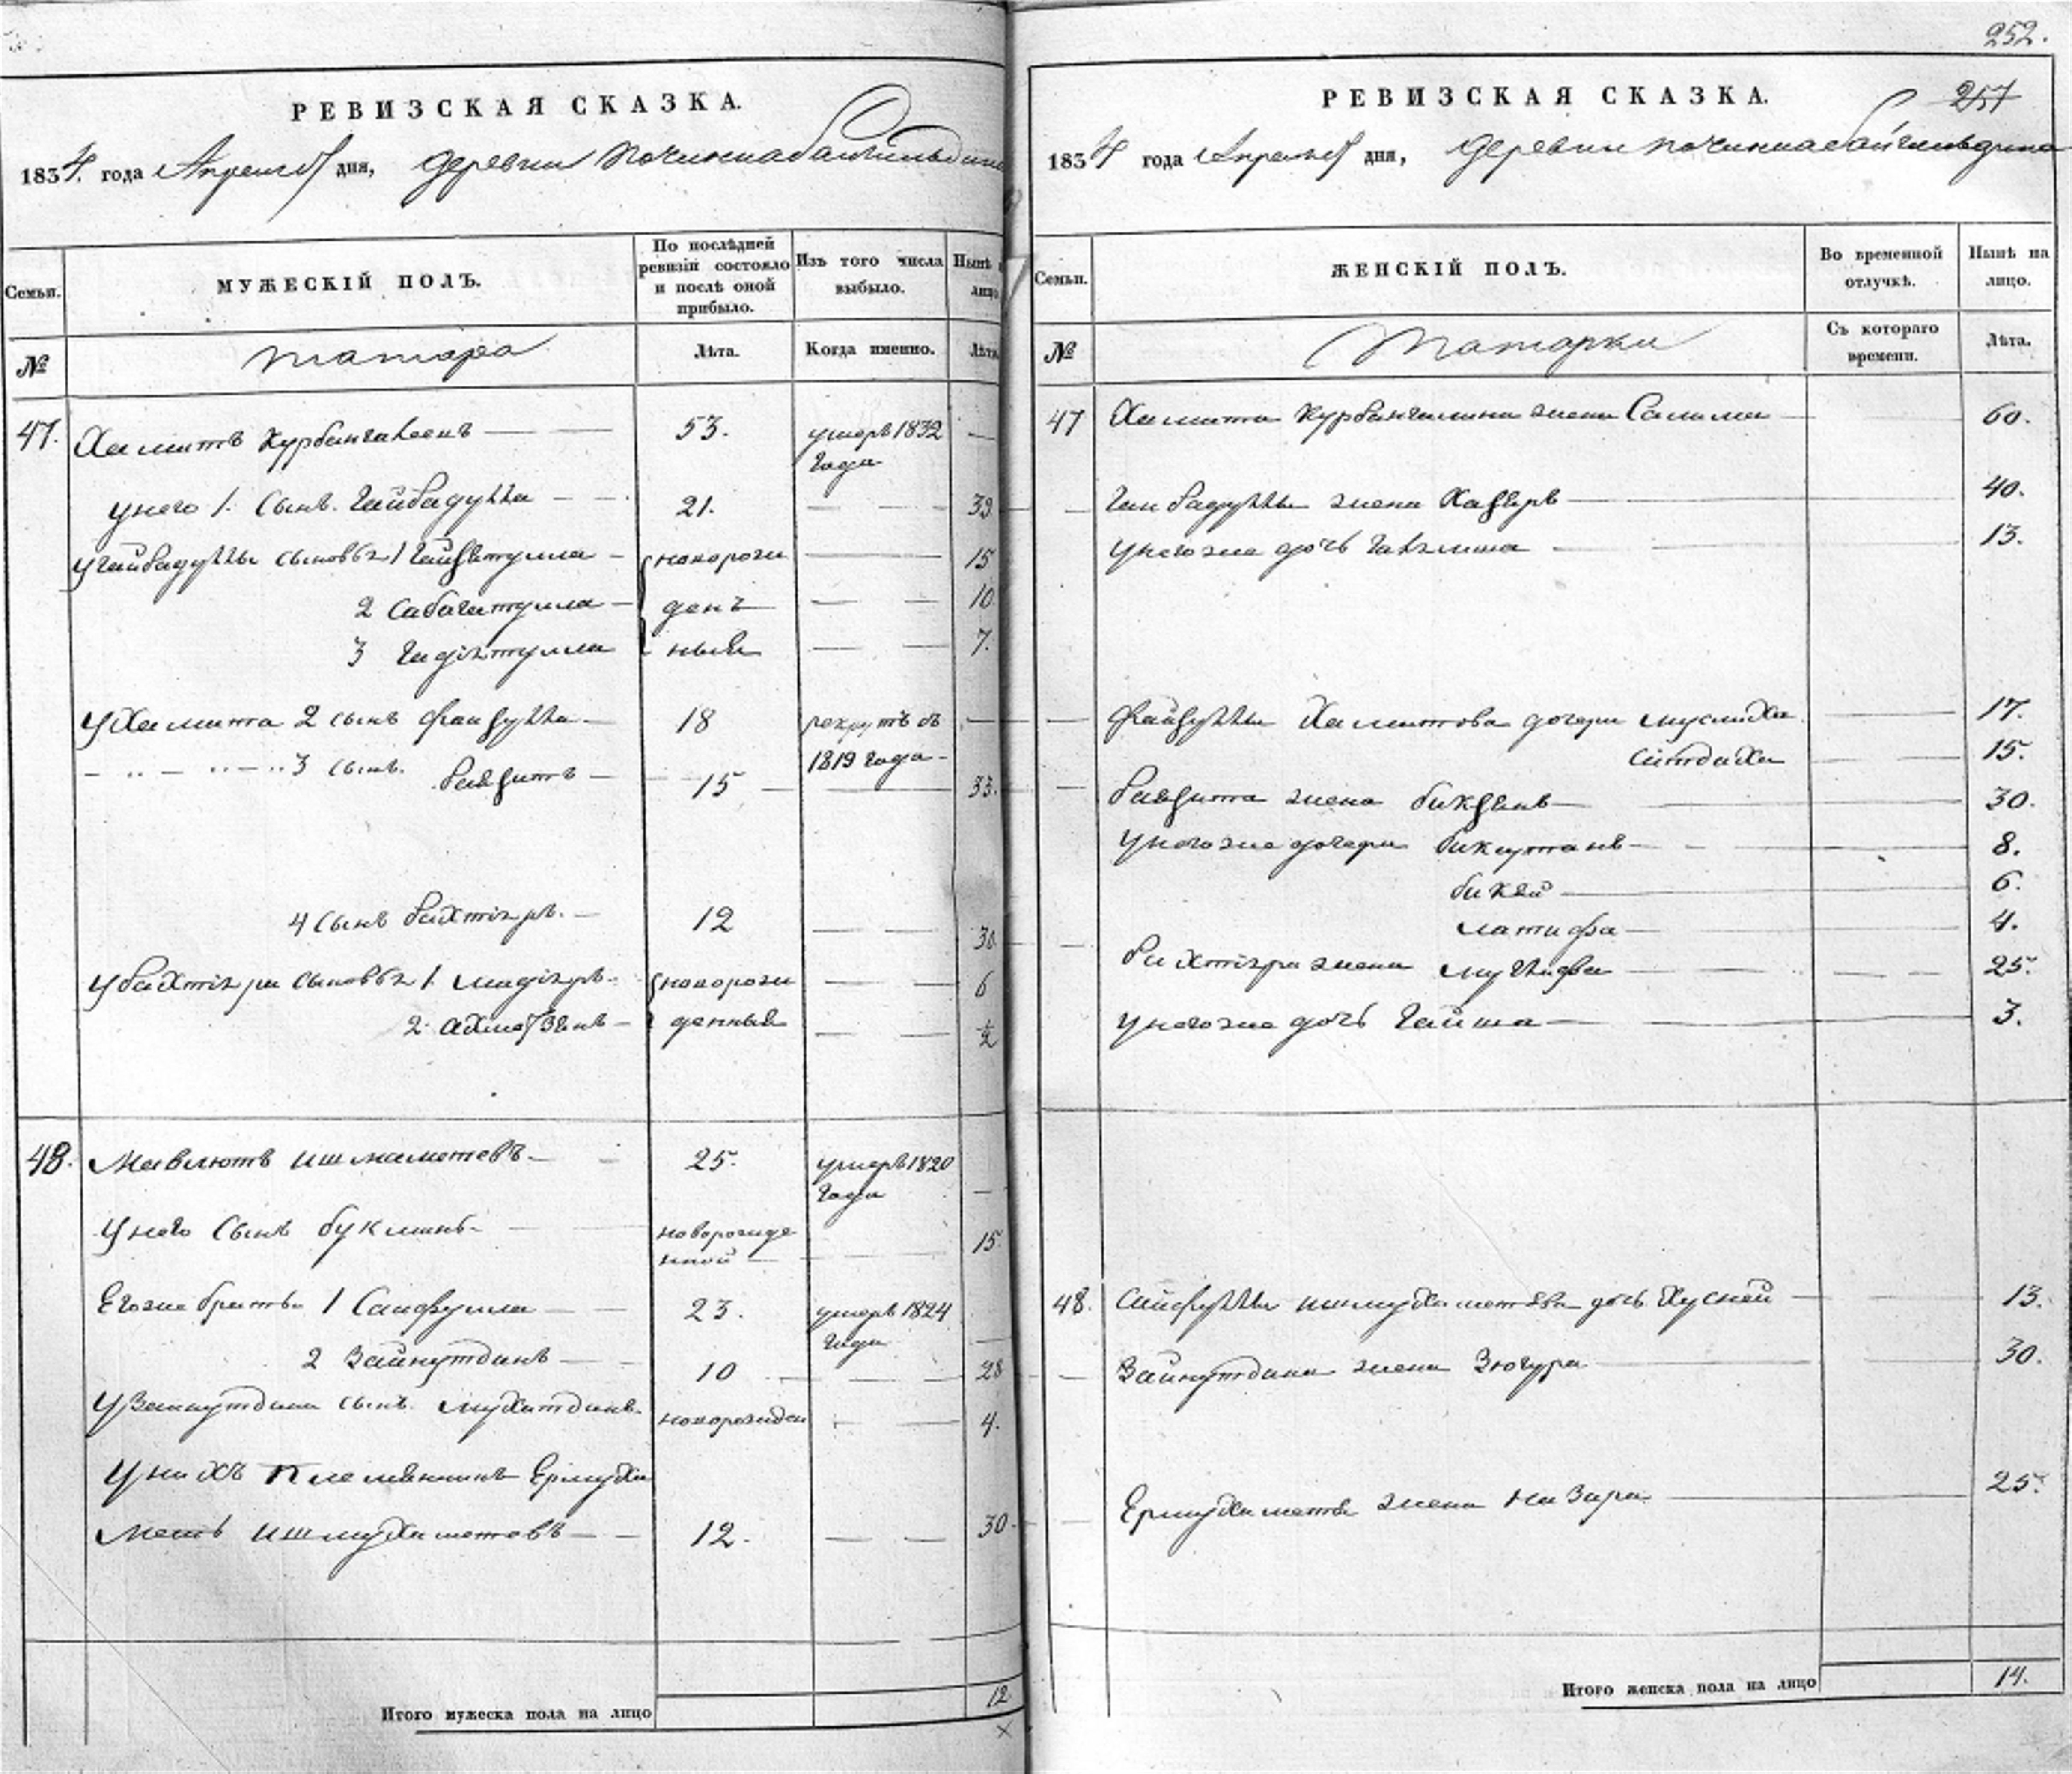 252.
РЕВИЗСКАЯ СКАЗКА.
1834. года Апреля дня, деревни починка байгильдина
Семьи.
МУЖЕСКІЙ ПОЛЪ.
По послѣдней ревизіи состояло и послѣ оной прибыло.
Изъ того числа выбыло.
Нынѣ лицо
№
татара
Лѣта.
Когда именно.
Лѣта
47. Хамитъ Курбангалеевъ 53. умеръ 1832 —
года
у него 1. сынъ Гайбадулла 21. — — 39
У Гайбадуллы сыновья 1 — новорож — 15
2 Сабагатулла — ден — — 10
3 Гадиятулла ныя — — 7.
У Хамита 2 сынъ Файзулла 18 рекрутъ съ —
1819 года
3 сынъ. Ваязитъ — 15 — 33.
4 сынъ Бахтіяръ. — 12 — — 30
У Бахтіяра сыновья 1. Мадіяръ новорож — — 6
2. Ахметзянъ — денныя — — ½
48. Мавлютъ Ишмаметевъ — 25. умеръ 1820
года —
У него сынъ Букмань новорожде
нной — 15
Его же братья 1 Сайфулла — 23. умеръ 1824
года —
2 Зайнутдинъ — 10 — 28
У Зайнутдина сынъ Мухитдинъ новорожден — 4.
У нихъ племянникъ Ермуха
метъ Ишмухаметовъ — 12. — — 30
Итого мужеска пола на лицо 12
×
РЕВИЗСКАЯ СКАЗКА. 257
1834 года Апреля дня, деревни починка байгильдина
Семьи.
ЖЕНСКІЙ ПОЛЪ.
Во временной отлучкѣ.
Нынѣ на лицо.
№
Татарки
Съ котораго времени.
Лѣта.
47 Хамита Курбангалина жена Салима — 60.
Гайбадуллы жена — 40.
У него же дочь — 13.
Файзуллы Хамитова дочери Муслиха — 17.
Ситдиха — 15.
Ваязита жена Бикзянъ — 30.
У него же дочери — 8.
Бикей — 6.
Латифа — 4.
Бахтіяра жена — 25.
У него же дочь Гайша — 3.
48. Сайфуллы Ишмухаметева дочь Хусней — 13.
Зайнутдина жена Зюгура — 30.
Ермухаметя жена Назира — 25.
Итого женска пола на лицо 14.